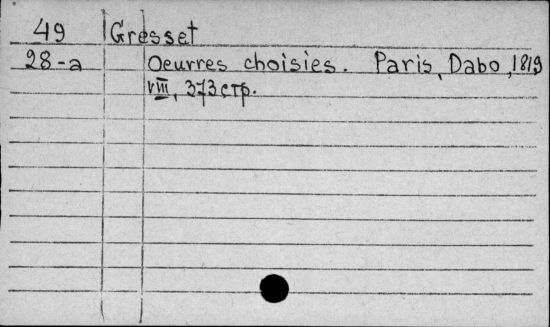 49 Gresset
28-a Oeuvres choisies. Paris, Dabo, 1819
VIII, 373 стр.